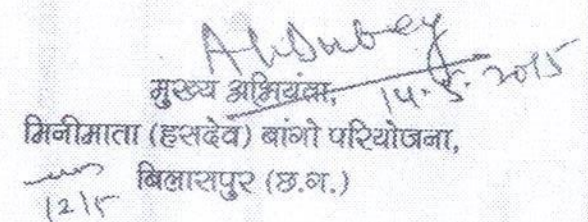 AKDubey
14.5.2015
मुख्य अभियंता,
मिनीमाता (हसदेव) बांगो परियोजना,
बिलासपुर (छ.ग.)
12/5